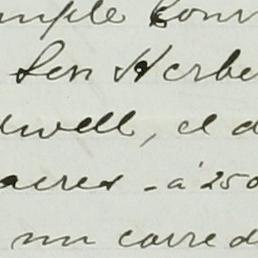 mple Conv
Sen Herbe
dwell, el d
acres - á 250
un corred